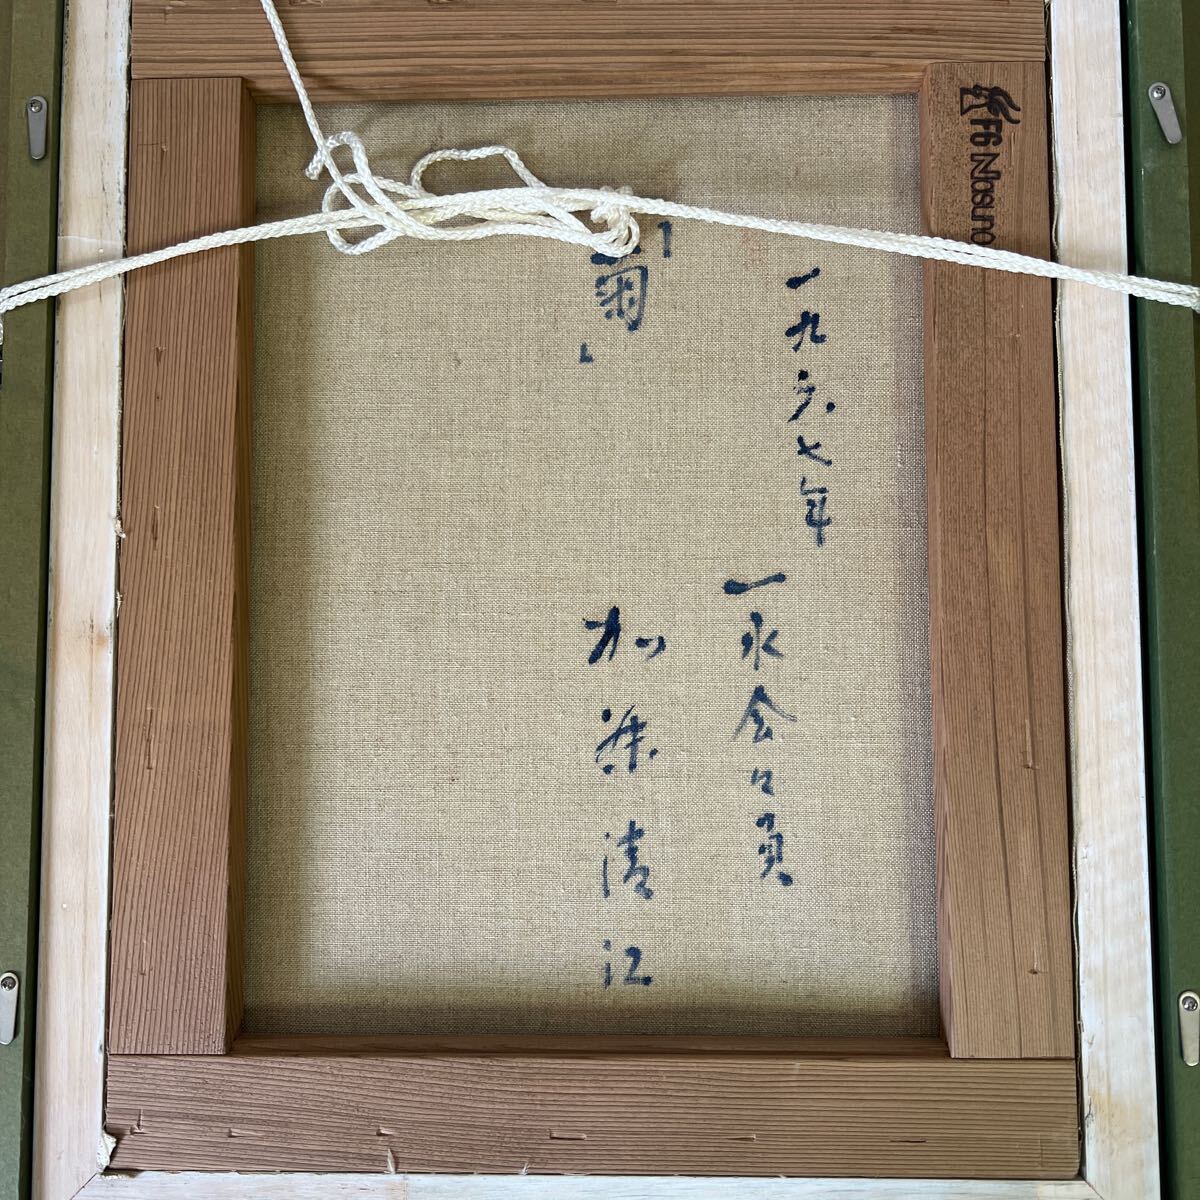 一九六七年
一水会々員
「菊」
加藤清江
F6 Nasuno